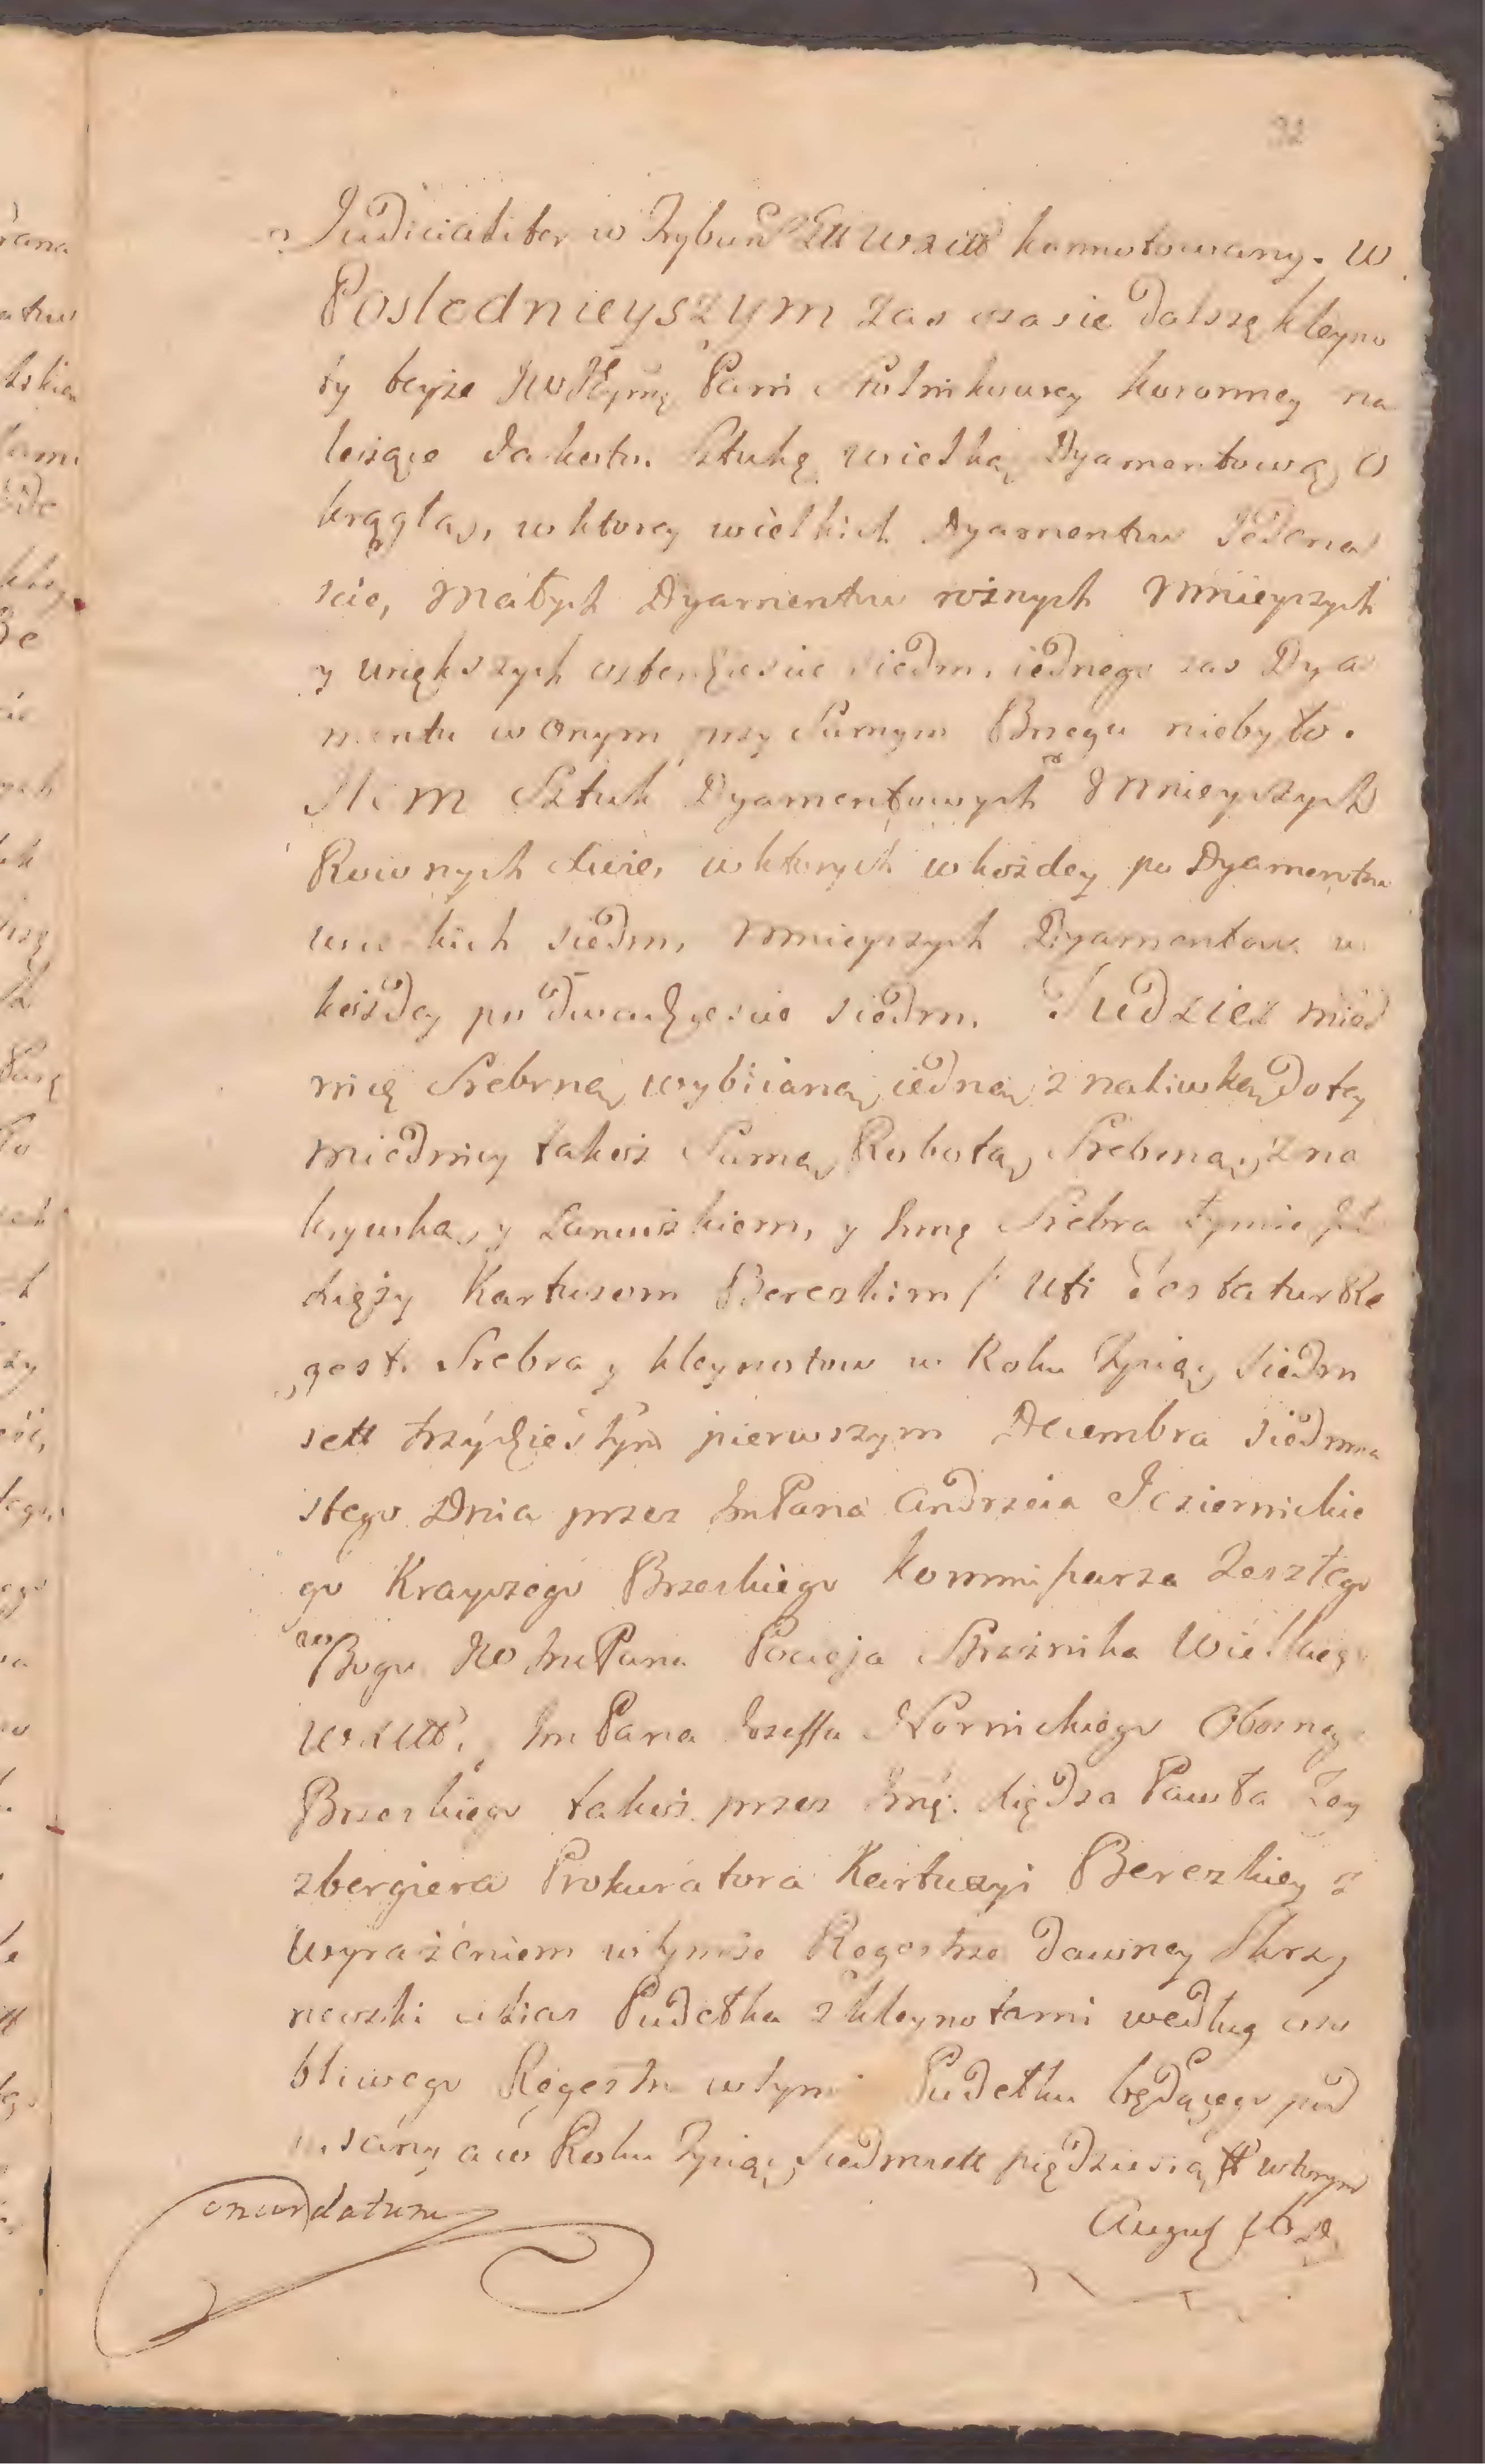 32
Judicialiter w Trybun Ltt wxitt konnotowany. W
Poslednieyszym zas czasie dalszę kleyno
ty teyże Pani Stolnikowey koronney na
leżące Jakoto. Sztukę wielką Dyamentową O
krągłą, w ktorey wielkich Dyamentow Jedena
scie, Małych Dyamentow rożnych Mnieyszych
y większych czterdziescie siedm, iednego zas Dya
mentu w Onym przy Samym Brzegu niebyło.
Item Sztuk Dyamentowych Mnieyszych
Rownych dwie, w ktorych w kożdey po Dyamentow
wielkich siedm, Mnieyszych Dyamentow w
kożdey po dwadziescie siedm. Tudziesz mied
nicę Srebrną wybiianą iedną z naliwką do tey
miednicy takoż Samą Robotą Srebrną, z na
krywką, y Łancuszkiem, y Inne Srebra tymże
xięży Kartuzom Bereskim / Uti testatur Re
gest. Srebra y kleynotow w Roku Tysiąc Siedm
sett trzydziestym pierwszym Decembra Siedmna
stego Dnia przez ImPana Andrzeia Jeziernickie
go Krayczego Brzeskiego Kommissarza Zeszłego
w Bogu JW ImPana Pocieja Strażnika Wielkiego
WXLitt. ImPana Jozeffa Nornickiego Obozneg
Brzeskiego takoż przez Imę. xiędza Pawła Ley
zbergiera Prokuratora Kartuzyi Berezkiey z
wyrażeniem w tymże Regestrze dawney Skrzy
neczki y Pudełka z kleynotami według oso
bliwego Regestru w tym Pudełku będącego pod
pisany a w Roku Tysiąc Siedmsett piędziesiątt wtorym
August
datum